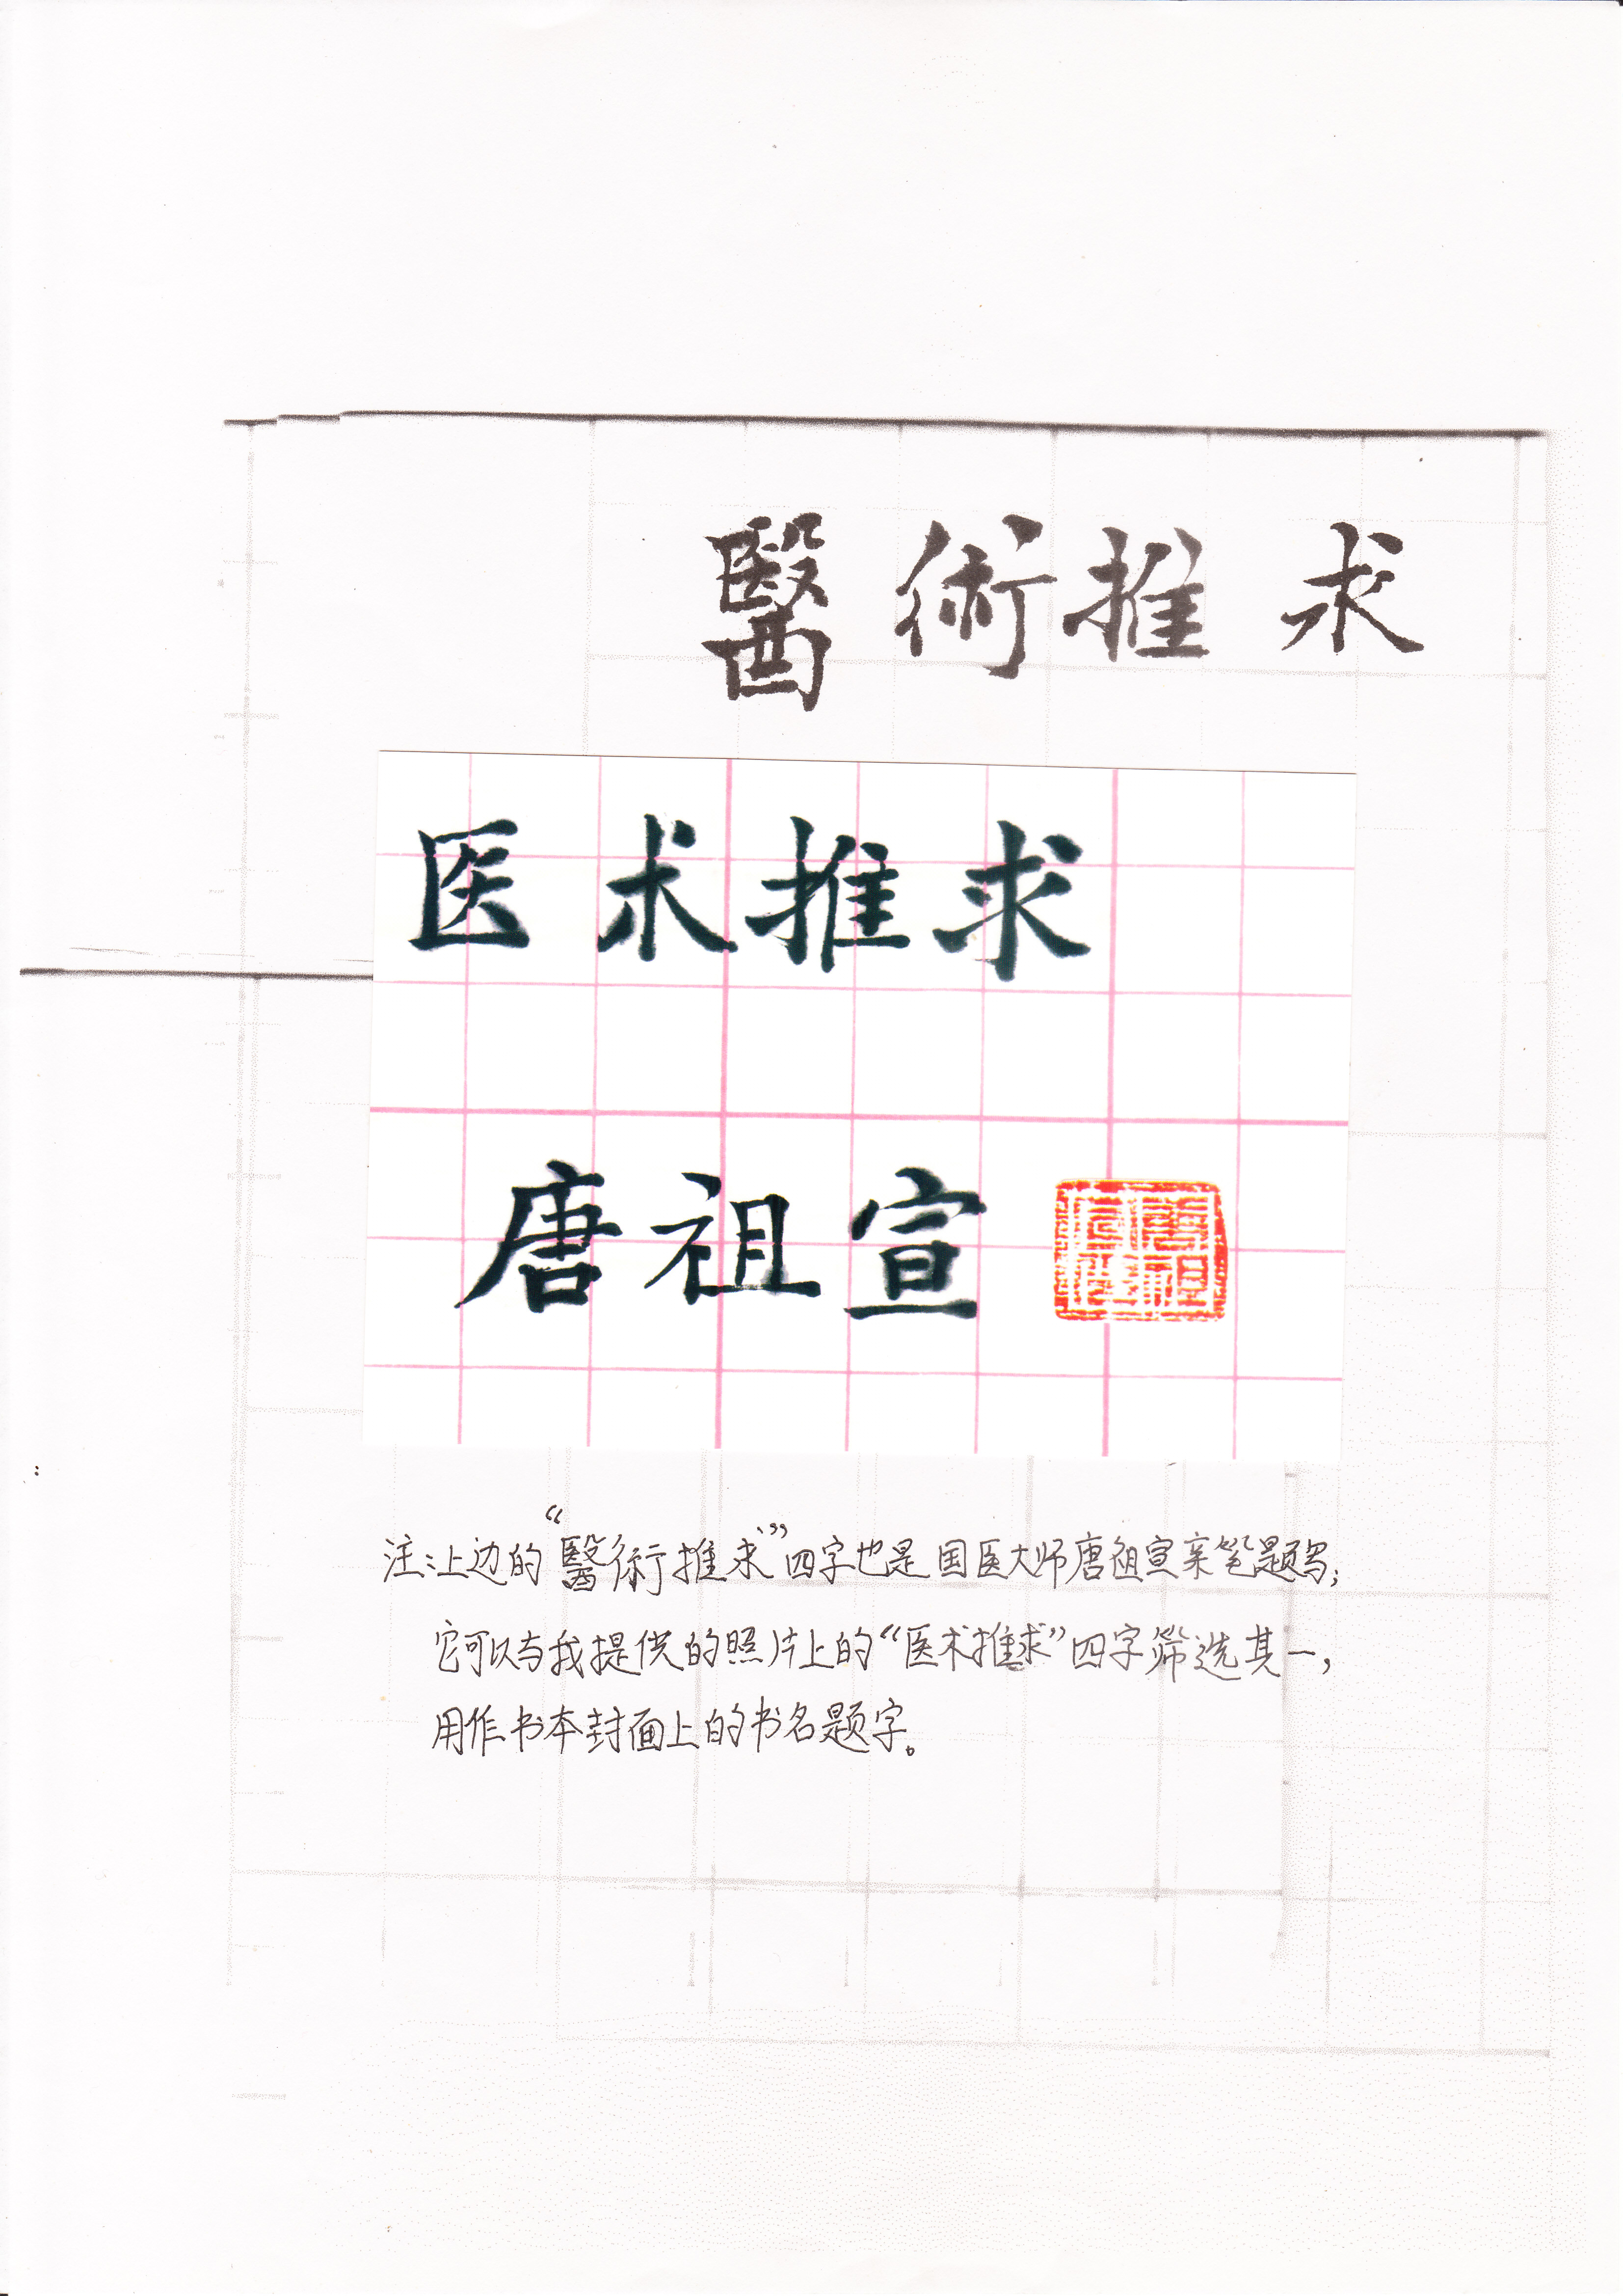 醫術推求
医术推求
唐祖宣
注:上边的“醫術推求”四字也是国医大师唐祖宣亲笔题写;
它可以与我提供的照片上的“医术推求”四字筛选其一,
用作书本封面上的书名题字。